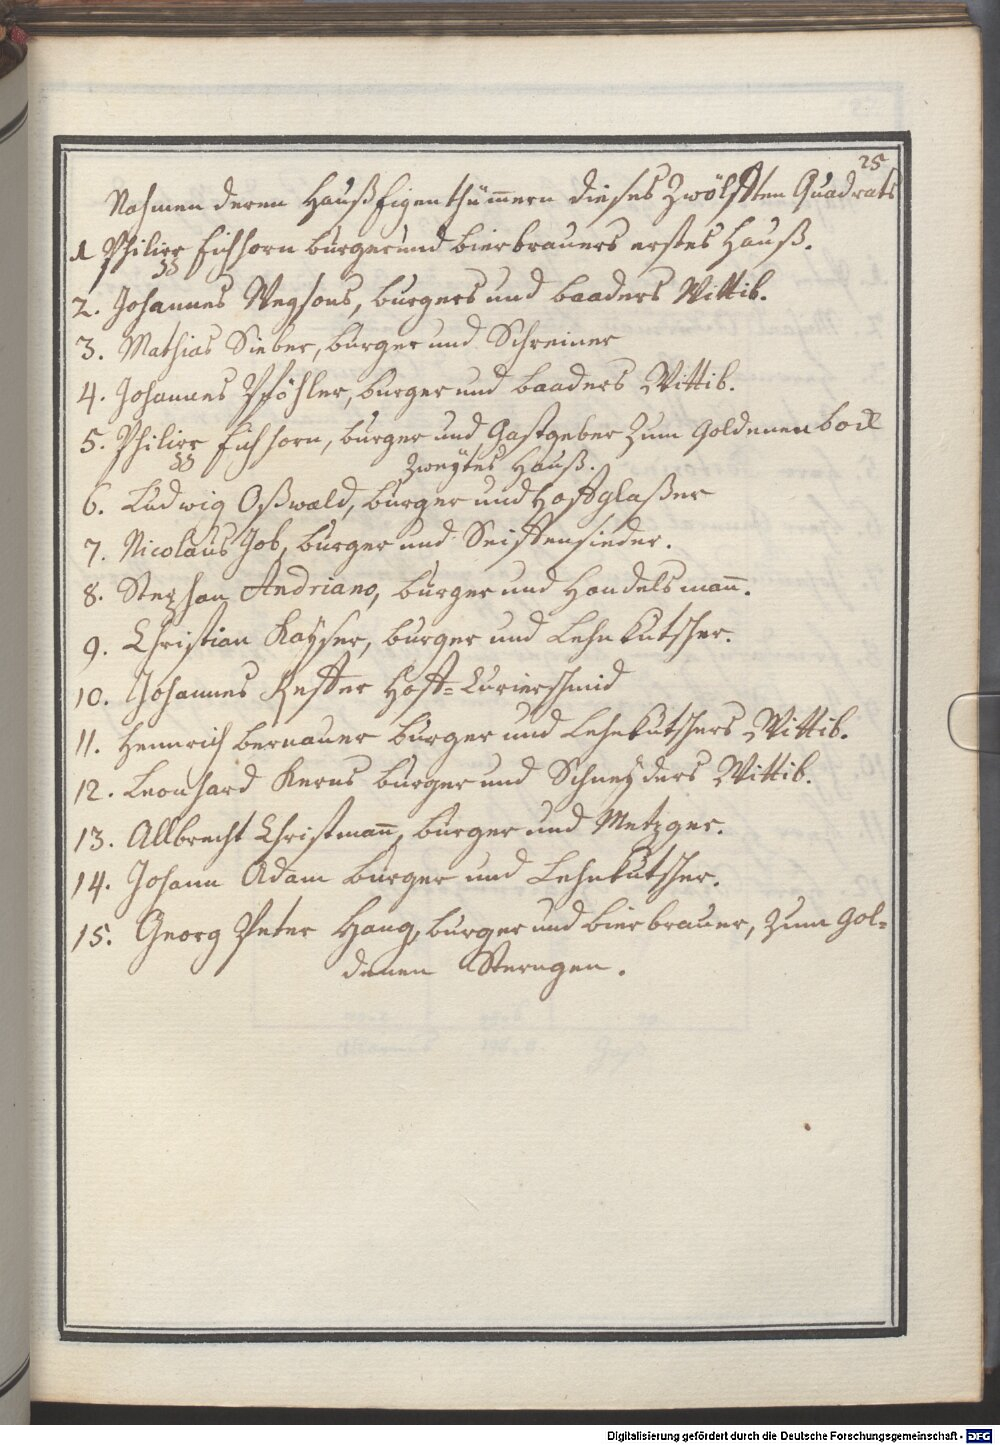 25
Nahmen deren Hauß Eigenthümmern dieses Zwölfften Quadrats
1 Philipp Eichhorn burger und bierbrauers erstes Hauß.
2. Johannes Wegsons, burgers und baaders Wittib.
3. Mathias Sieber, burger und Schreiner
4. Johannes Pföhler, burger und baaders Wittib.
5. Philipp Eichhorn, burger und Gastgeber Zum Goldenen bock
Zweytes Hauß.
6. Ludwig Oßwald, burger und Hoffglaßer
7. Nicolaus Job, burger und Seiffensieder.
8. Stephan Andriano, burger und Handelsmañ.
9. Christian Kayser, burger und Lehnkutscher.
10. Johannes Reffer Hoff=Curierschmid
11. Hennrich bernauer burger und Lehnkutschers Wittib.
12. Leonhard Kerns burger und Schneyders Wittib.
13. Allbrecht Christmañ, burger und Metzger.
14. Johann Adam burger und Lehnkutscher.
15. Georg Peter Haug, burger und bierbrauer, Zum Gol=
denen Sterngen.
Digitalisierung gefördert durch die Deutsche Forschungsgemeinschaft - DFG